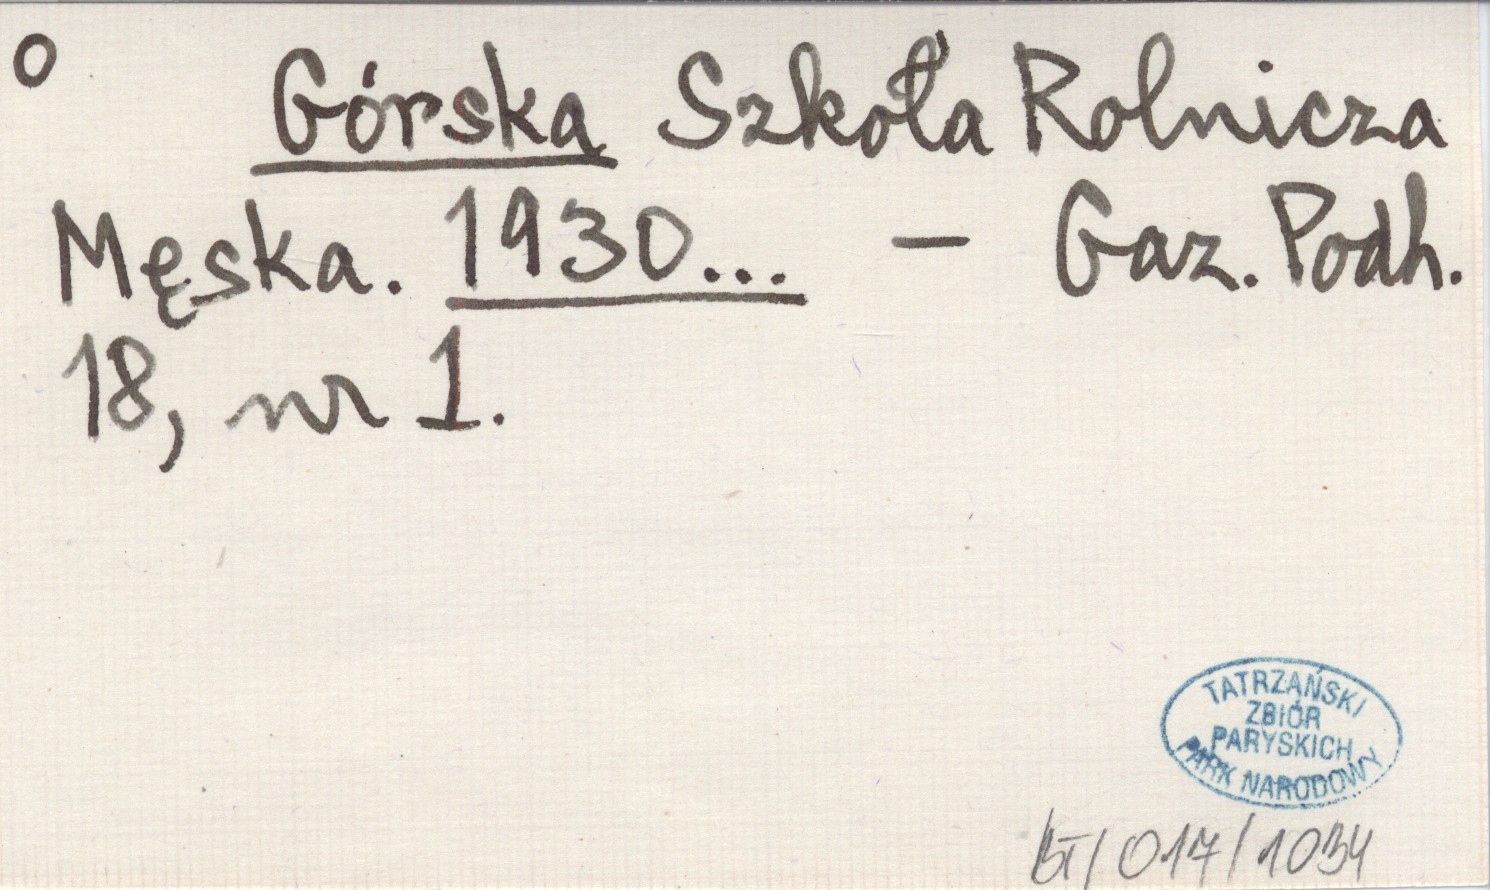 o Górska Szkoła Rolnicza
Męska. 1930... – Gaz. Podh.
18, nr 1.
TATRZAŃSKI
ZBIÓR
PARYSKICH
PARK NARODOWY
BT/017/1034